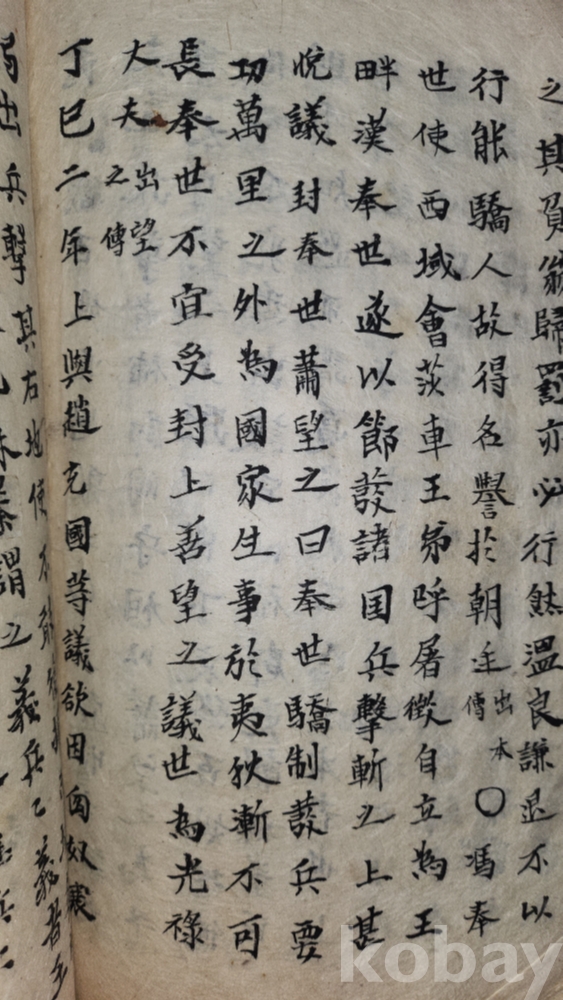 之其負翁歸罰亦必行然溫良謙退不以
行能驕人故得名譽於朝廷出本傳○馮奉
世使西域會莎車王弟呼屠徵自立為王
畔漢奉世遂以節發諸国兵擊斬之上甚
悅議封奉世蕭望之曰奉世驕制發兵要
功萬里之外為國家生事於夷狄漸不可
長奉世不宜受封上善望之議世為光祿
大夫出望之傳
丁巳二年上與趙充國等議欲因匈奴衰
弱出兵擊其右地使不
謂之義兵
kobay